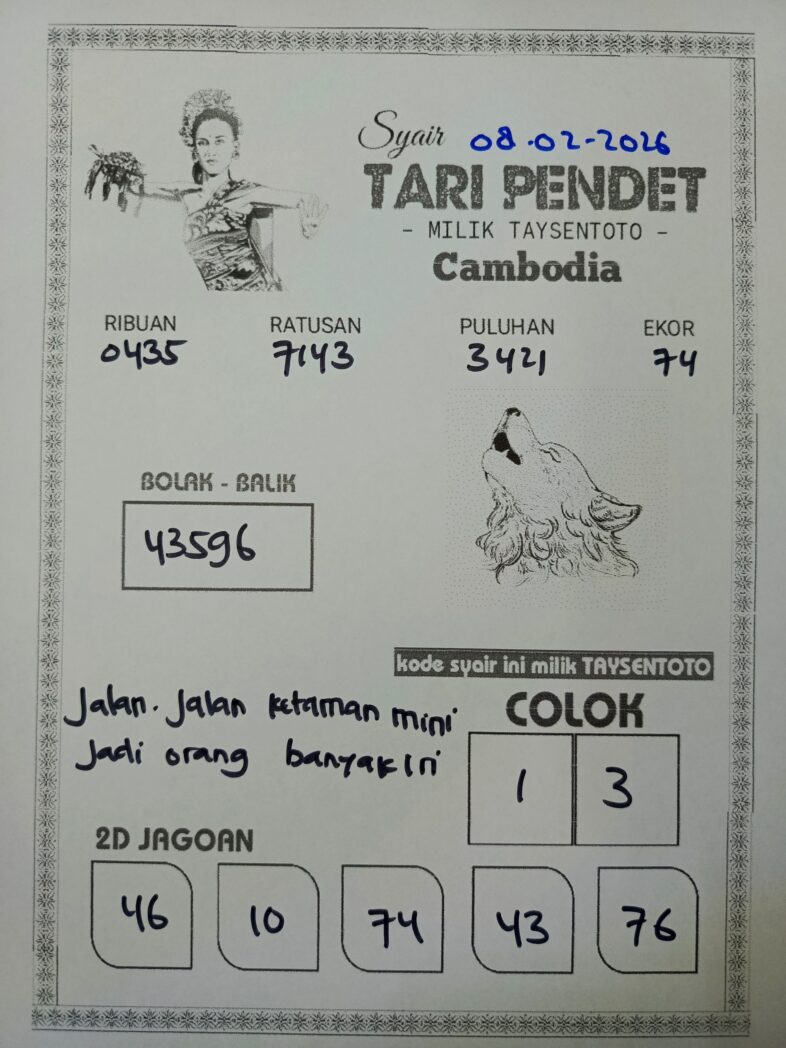 Syair 08.02-2026
TARI PENDET
- MILIK TAYSENTOTO -
Cambodia
RIBUAN RATUSAN PULUHAN EKOR
0435 7143 3421 74
BOLAK - BALIK
43596
kode syair ini milik TAYSENTOTO
Jalan. Jalan ketaman mini
Jadi orang banyak iri
COLOK
1 3
2D JAGOAN
46 10 74 43 76